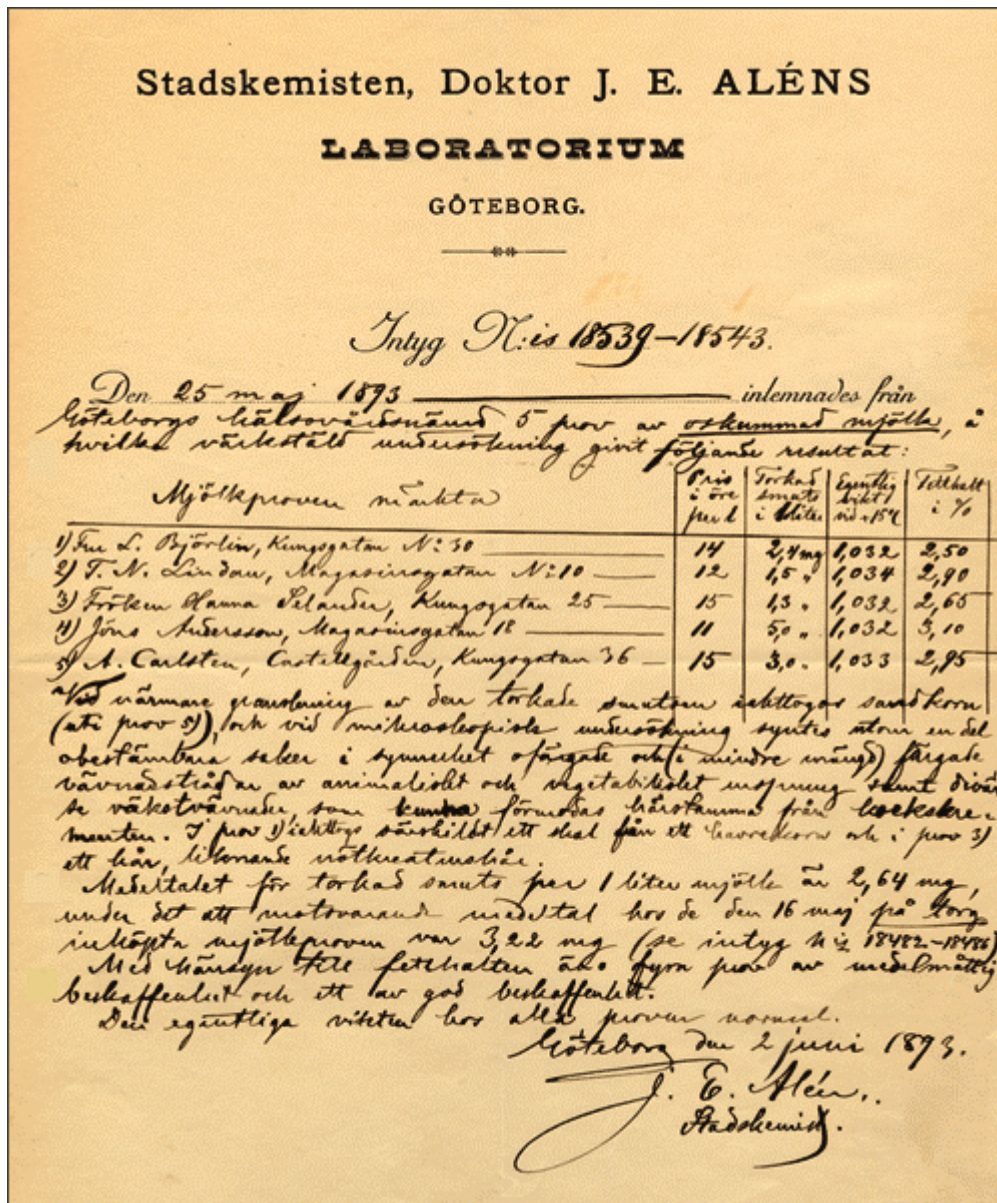 Stadskemisten, Doktor J. E. ALÉNS
LABORATORIUM
GÖTEBORG.
Intyg N:is 18539–18543.
Den 25 maj 1893 inlemnades från
Göteborgs hälsovårdsnämd 5 prov av oskummad mjölk, å
hvilka värkstäld undersökning givit följande resultat:
Mjölkproven märkta
Pris i öre per l
Torkad smuts i 1 liter
Egentlig vikt vid +15°
Fetthalt i %
1) Fru L. Björlin, Kungsgatan No 30 14 2,4 mg 1,032 2,50
2) T. N. Lindau, Magasinsgatan No 10 12 1,5 " 1,034 2,90
3) Fröken Hanna Selander, Kungsgatan 25 15 1,3 " 1,032 2,65
4) Jöns Andersson, Magasinsgatan 18 11 5,0 " 1,032 3,10
5) A. Carlsten, Castellgården, Kungsgatan 36 15 3,0 " 1,033 2,95
Vid närmare granskning av den torkade smutsen iakttogos sandkorn
(uti prov 5)), och vid mikroskopisk undersökning syntes utom en del
obestämbara saker i synnerhet ofärgade och (i mindre mängd) färgade
vävnadstrådar av animaliskt och vegetabiliskt ursprung samt divär
se växtvävnader, som kunna förmodas härstamma från koekskre-
menten. I prov 1) iakttogs särskildt ett skal från ett havrekorn och i prov 3)
ett hår, liknande nötkreaturshår.
Medeltalet för torkad smuts per 1 liter mjölk är 2,64 mg,
under det att motsvarande medeltal hos de den 16 maj på torg
inköpta mjölkproven var 3,22 mg (se intyg N:is 18482–18486)
Med hänsyn till fetthalten äro fyra prov av medelmåttig
beskaffenhet och ett av god beskaffenhet.
Den egentliga vikten hos alla proven normal.
Göteborg den 2 juni 1893.
J. E. Alén.
Stadskemist.